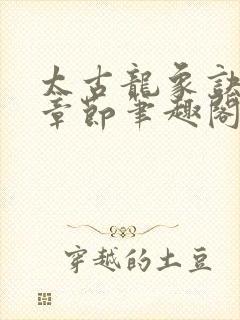 太古龍象訣
章節筆趣閣
穿越的土豆